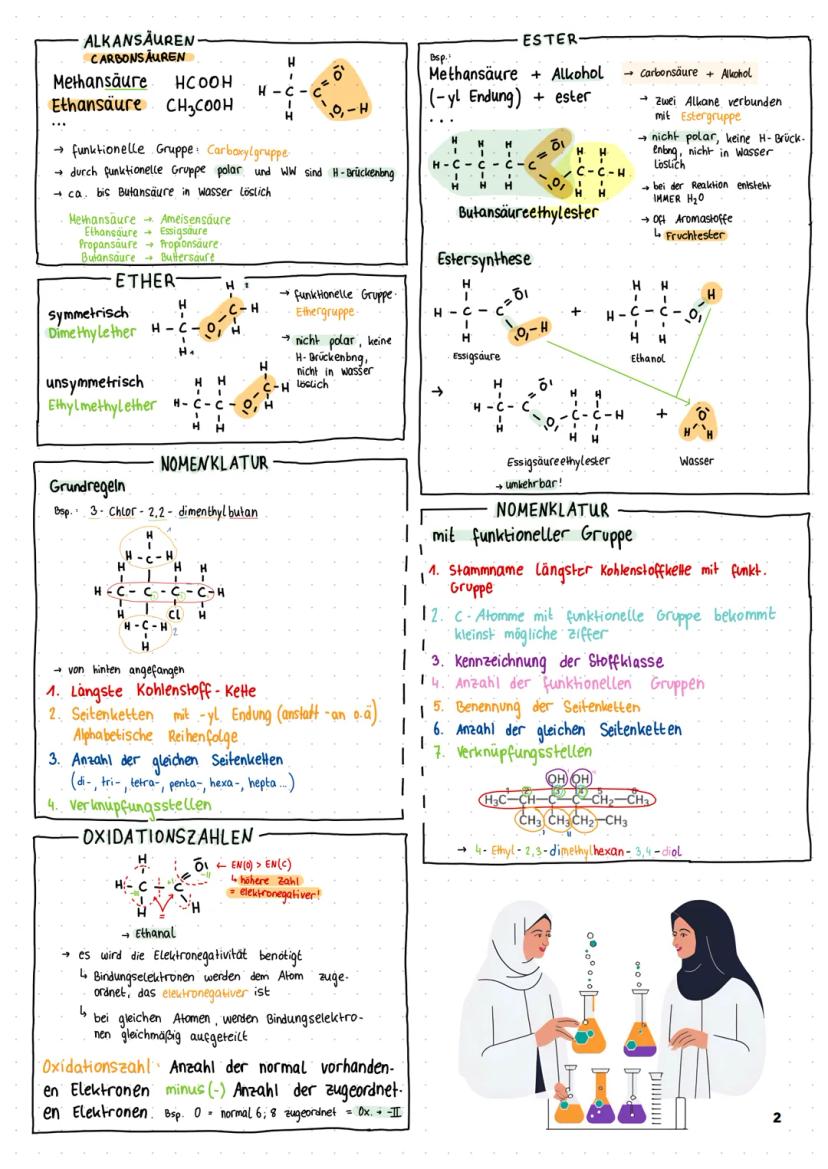 ALKANSÄUREN
CARBONSÄUREN
Methansäure HCOOH
Ethansäure CH₃COOH
...
→ funktionelle Gruppe: Carboxylgruppe
→ durch funktionelle Gruppe polar und WW sind H-Brückenbng
→ ca. bis Butansäure in Wasser löslich
Methansäure → Ameisensäure
Ethansäure → Essigsäure
Propansäure → Propionsäure
Butansäure → Buttersäure
ETHER
symmetrisch
Dimethylether
unsymmetrisch
Ethylmethylether
→ funktionelle Gruppe:
Ethergruppe
→ nicht polar, keine
H-Brückenbng,
nicht in Wasser
löslich
NOMENKLATUR
Grundregeln
Bsp.: 3-Chlor-2,2-dimenthylbutan
→ von hinten angefangen
1. Längste Kohlenstoff-Kette
2. Seitenketten mit -yl Endung (anstatt -an o.ä)
Alphabetische Reihenfolge
3. Anzahl der gleichen Seitenketten
(di-, tri-, tetra-, penta-, hexa-, hepta...)
4. Verknüpfungsstellen
OXIDATIONSZAHLEN
← EN(O) > EN(C)
↳ höhere Zahl
= elektronegativer!
→ Ethanal
→ es wird die Elektronegativität benötigt
↳ Bindungselektronen werden dem Atom zuge-
ordnet, das elektronegativer ist
↳ bei gleichen Atomen, werden Bindungselektro-
nen gleichmäßig aufgeteilt
Oxidationszahl: Anzahl der normal vorhanden-
en Elektronen minus(-) Anzahl der zugeordnet-
en Elektronen. Bsp. O = normal 6; 8 zugeordnet = Ox. → -II
ESTER
Bsp.:
Methansäure + Alkohol
(-yl Endung) + ester
...
→ Carbonsäure + Alkohol
→ zwei Alkane verbunden
mit Estergruppe
→ nicht polar, keine H-Brück-
enbng, nicht in Wasser
löslich
→ bei der Reaktion entsteht
IMMER H₂O
→ Oft Aromastoffe
↳ Fruchtester
Butansäureethylester
Estersynthese
Essigsäure
+
Ethanol
→
Essigsäureethylester
+
Wasser
→ umkehrbar!
NOMENKLATUR
mit funktioneller Gruppe
1. Stammname längster Kohlenstoffkette mit funkt.
Gruppe
2. C-Atomme mit funktionelle Gruppe bekommt
kleinst mögliche Ziffer
3. Kennzeichnung der Stoffklasse
4. Anzahl der funktionellen Gruppen
5. Benennung der Seitenketten
6. Anzahl der gleichen Seitenketten
7. Verknüpfungsstellen
OH OH
H₃C—CH—C—C—CH₂—CH₃
CH₃ CH₃ CH₂—CH₃
→ 4-Ethyl-2,3-dimethylhexan-3,4-diol
2